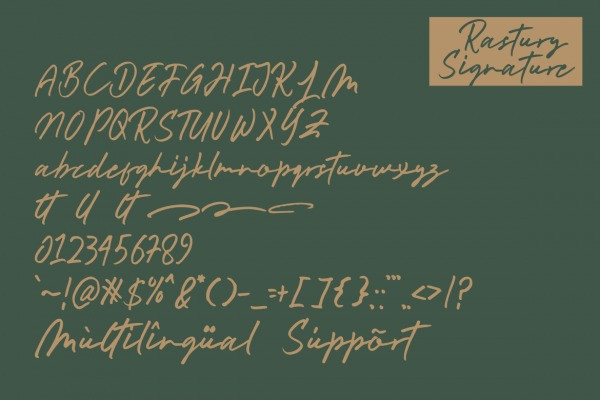 Rastury
Signature
ABCDEFGHIJKLM
NOPQRSTUVWXYZ
abcdefghijklmnopqrstuvwxyz
tt ll lt
0123456789
`~!@#$%^&*()-_=+[]{};:'",.<>|?
Mùltilîngüal Súppõrt